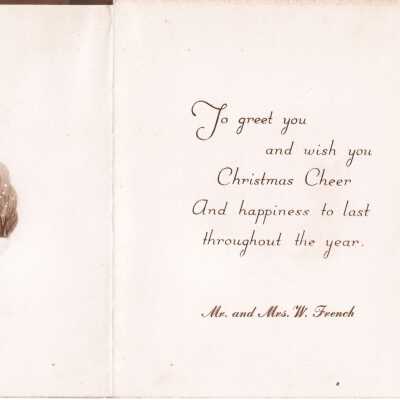 To greet you
and wish you
Christmas Cheer
And happiness to last
throughout the year.
Mr. and Mrs. W. French